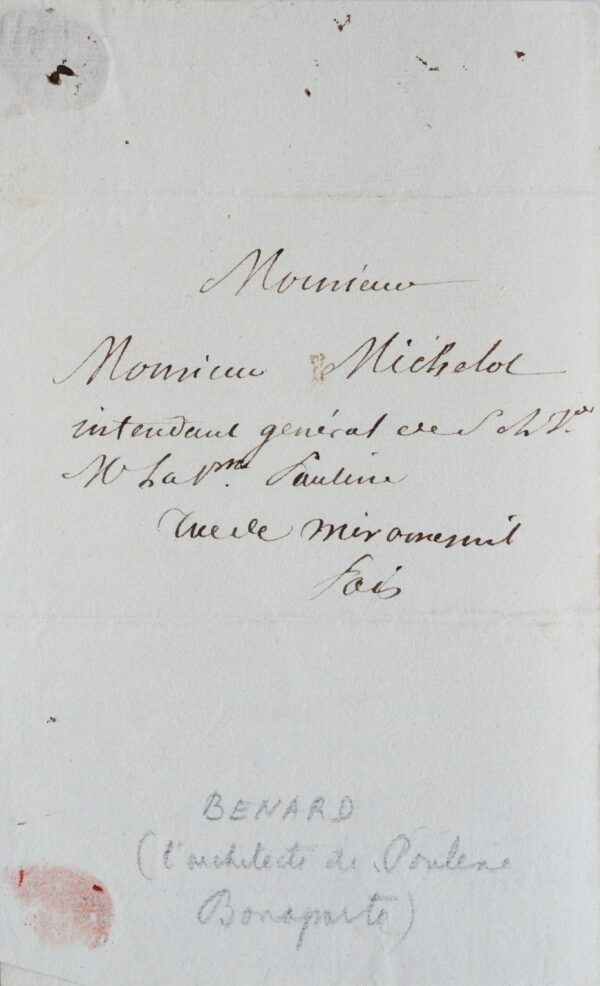 Monsieur
Monsieur Michelot
intendant général de S
Mme la Pse Pauline
Rue de Miromesnil
Paris
BENARD
(l'architecte de Pauline
Bonaparte)